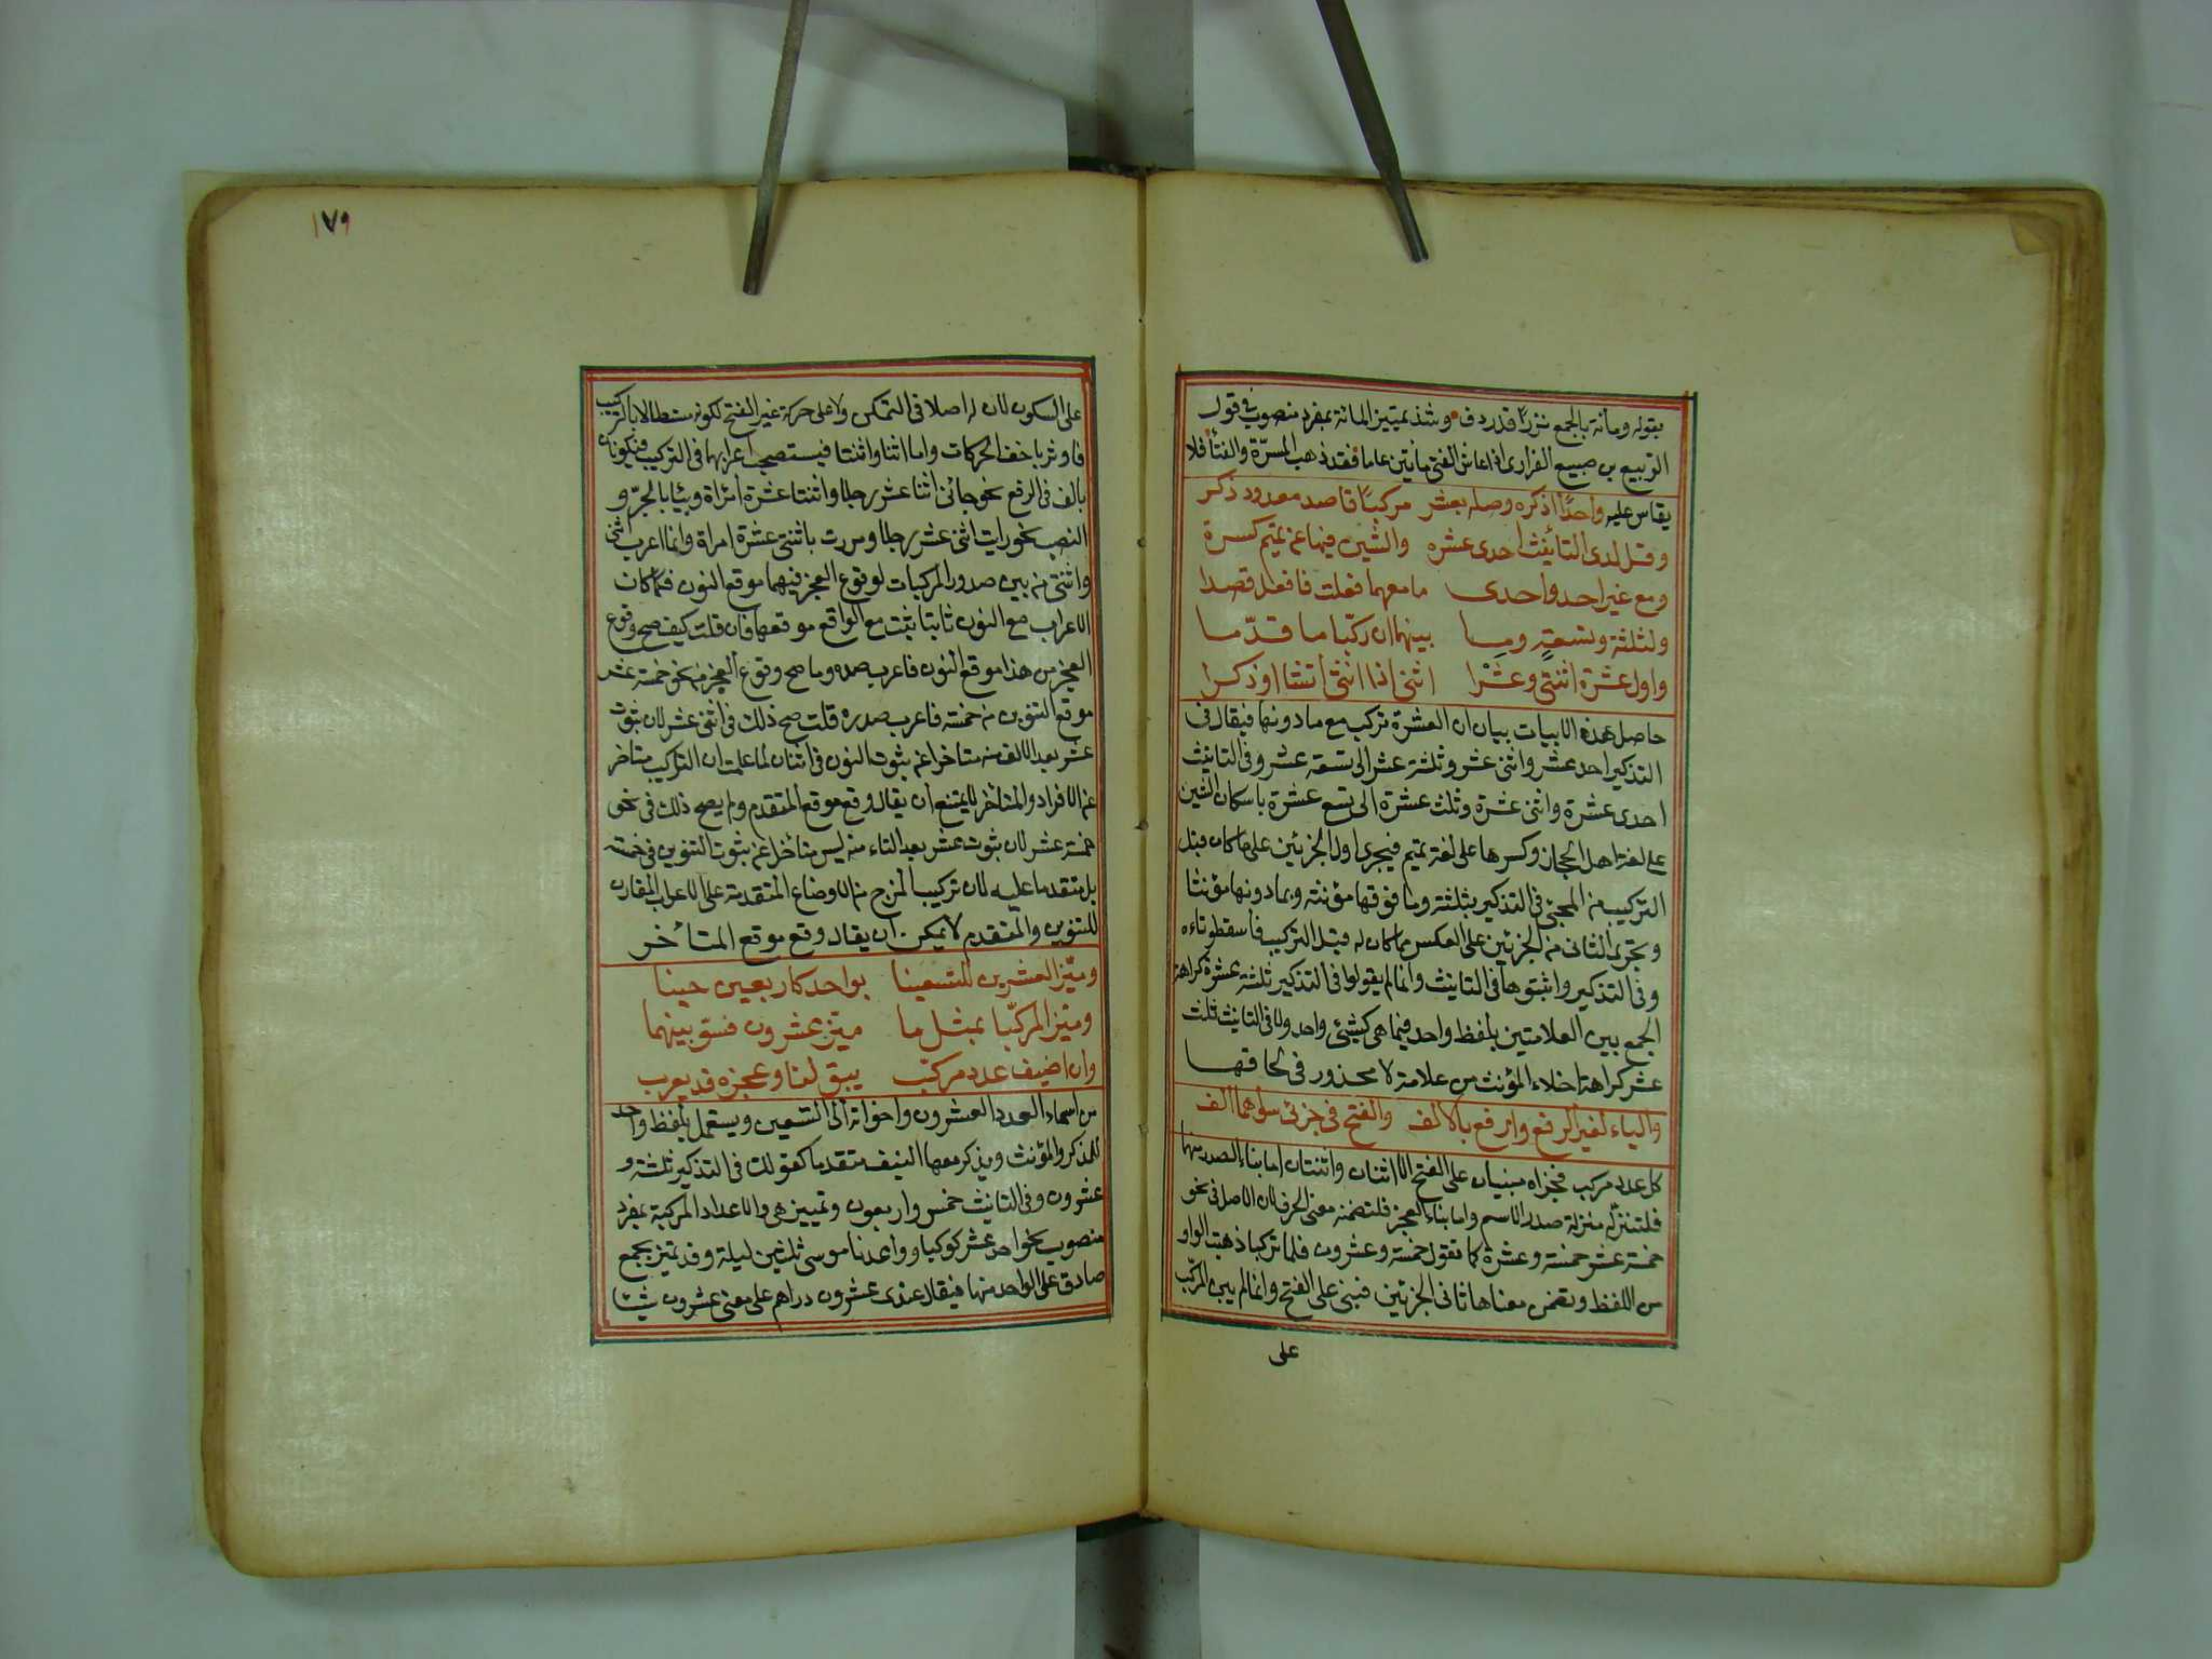 بقوله ومائة بالجمع نزرًا قد ردف وشذ تمييز المائة بمفرد منصوب في قول
الربيع بن ضبيع الفزاري اذا عاش الفتى مايتين عاما فقد ذهب المسرّة والفتأ فلا
يقاس عليه واحدًا اذكره وصله بعشر مركبًا قاصد معدود ذكر
وقل لدى التأنيث احدى عشره والشين فيها عن تميم كسرة
ومع غير احد واحدى ما معهما فعلت فافعل قصدا
ولثلثة وتسعةٍ وما بينهما ان ركّبا ما قدّما
واول عشرة اثنتي وعشرا اثنى اذا انثى تشا او ذكرا
حاصل هذه الابيات بيان ان العشرة تركب مع ما دونها فيقال في
التذكير احد عشر واثنى عشر وثلثة عشر الى تسعة عشر وفي التانيث
احدى عشرة واثنتى عشرة وثلث عشرة الى تسع عشرة باسكان الشين
على لغة اهل الحجاز وكسرها على لغة تميم فيجرى اول الجزئين على ما كان قبل
التركيب من المجئ في التذكير بثلثة وما فوقها مؤنثة وبما دونها مؤنثا
ويجرى الثاني من الجزئين على العكس مما كان له قبل التركيب فاسقطو تاءه
وفي التذكير واثبتوها في التانيث وانما لم يقولوا في التذكير ثلثة عشرة كراهة
الجمع بين العلامتين بلفظ واحد فيما هي كشيئ واحد ولا في التانيث ثلث
عشر كراهة اخلاء المؤنث من علامة لا محذور في لحاقها
والياء لغير الرفع وارفع بالالف والفتح في جزئي سواهما الف
كل عدد مركب فجزاه مبنيان على الفتح الا اثنان واثنتان اما بناء الصدر منها
فلتنزله منزلة صدر الاسم واما بناء العجز فلتضمنه معنى الحرف لان الاصل في نحو
خمسة عشر خمسة وعشرة كما تقول خمسة وعشرون فلما تركبا ذهبت الواو
من اللفظ وتضمن معناها ثاني الجزئين فبني على الفتح وانما لم يبن المركّب
على
١٧٩
على السكون لان له اصلا في التمكن ولا على حركة غير الفتح لكونه مستطالا بالتركيب
فاوثر باخف الحركات واما اثنا واثنتا فيستصحب اعرابهما في التركيب فيكونان
بالف في الرفع نحو جائنى اثنا عشر رجلا واثنتا عشرة امراة وبيا بالجرّ و
النصب نحو رايت اثنى عشر رجلا ومررت باثنتى عشرة امراة وانما اعرب اثنى
واثنتى من بين صدور المركبات لوقوع العجز فيهما موقع النون فكما كان
الاعراب مع النون ثابتا يثبت مع الواقع موقعها فان قلت كيف صح وقوع
العجز من هذا موقع النون فاعرب صدره وما صح وقوع العجز من نحو خمسة عشر
موقع التنوين من خمسة فاعرب صدره قلت صح ذلك في اثنى عشر لان ثبوت
عشر بعد الالف منه متاخرا عن ثبوت النون في اثنان لما علمت ان التركيب متاخر
عن الافراد والمتأخر لا يمتنع ان يقال وقع موقع المتقدم ولم يصح ذلك في نحو
خمسة عشر لان ثبوت عشر بعد التاء منه ليس متأخرا عن ثبوت التنوين في خمسة
بل متقدما عليه لان تركيب المزج من الاوضاع المتقدمة على الاعراب المقارن
للتنوين والمتقدم لا يمكن ان يقال وقع موقع المتأخر
وميّز العشرين للتسعينا بواحد كاربعين حينا
وميّز المركّبا بمثل ما ميّز عشرون فسوّ بينهما
وان اضيف عدد مركّب يبق لنا وعجزه قد يعرب
من اسماء العدد العشرون واخواته الى التسعين ويستعمل بلفظ واحد
للمذكر والمؤنث ويذكر معها النيف متقدما كقولك في التذكير ثلثة و
عشرون وفي التانيث خمس واربعون وتمييز هي والاعداد المركبة بمفرد
منصوب نحو احد عشر كوكبا وواعدنا موسى ثلثين ليلة وقد تميز بجمع
صادق على الواحد منها فيقال عندى عشرون دراهم على معنى عشرون شيئا